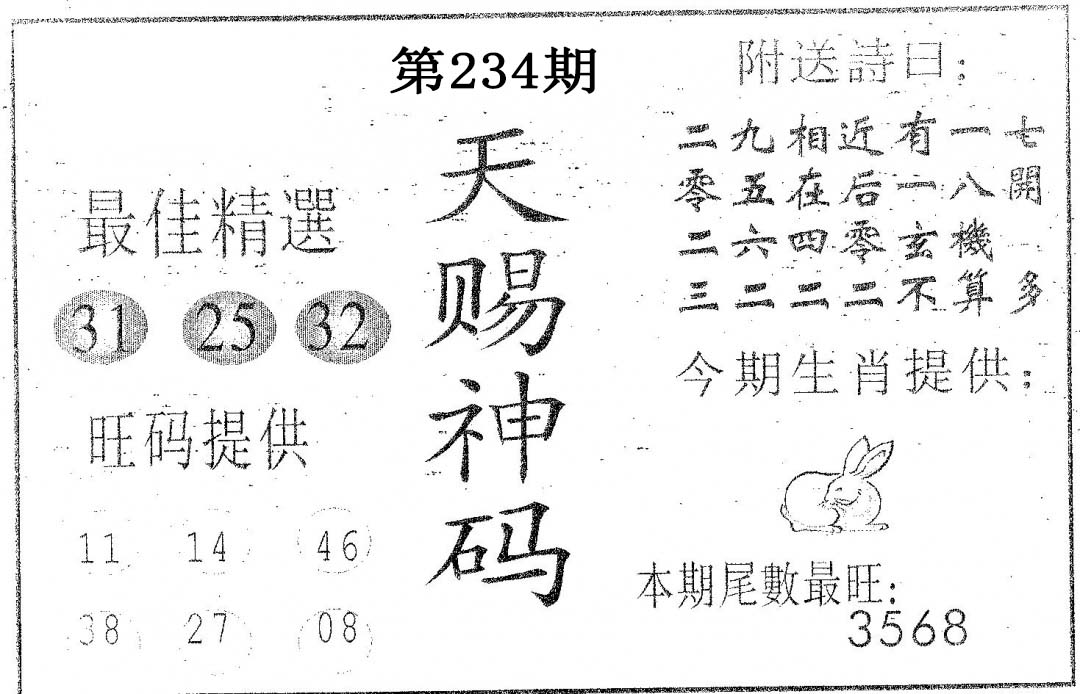 第234期
天赐神码
最佳精選
31 25 32
旺码提供
11 14 46
38 27 08
附送詩曰：
二九相近有一七
零五在后一八開
二六四零玄機
三二二二不算多
今期生肖提供：
本期尾數最旺：
3568